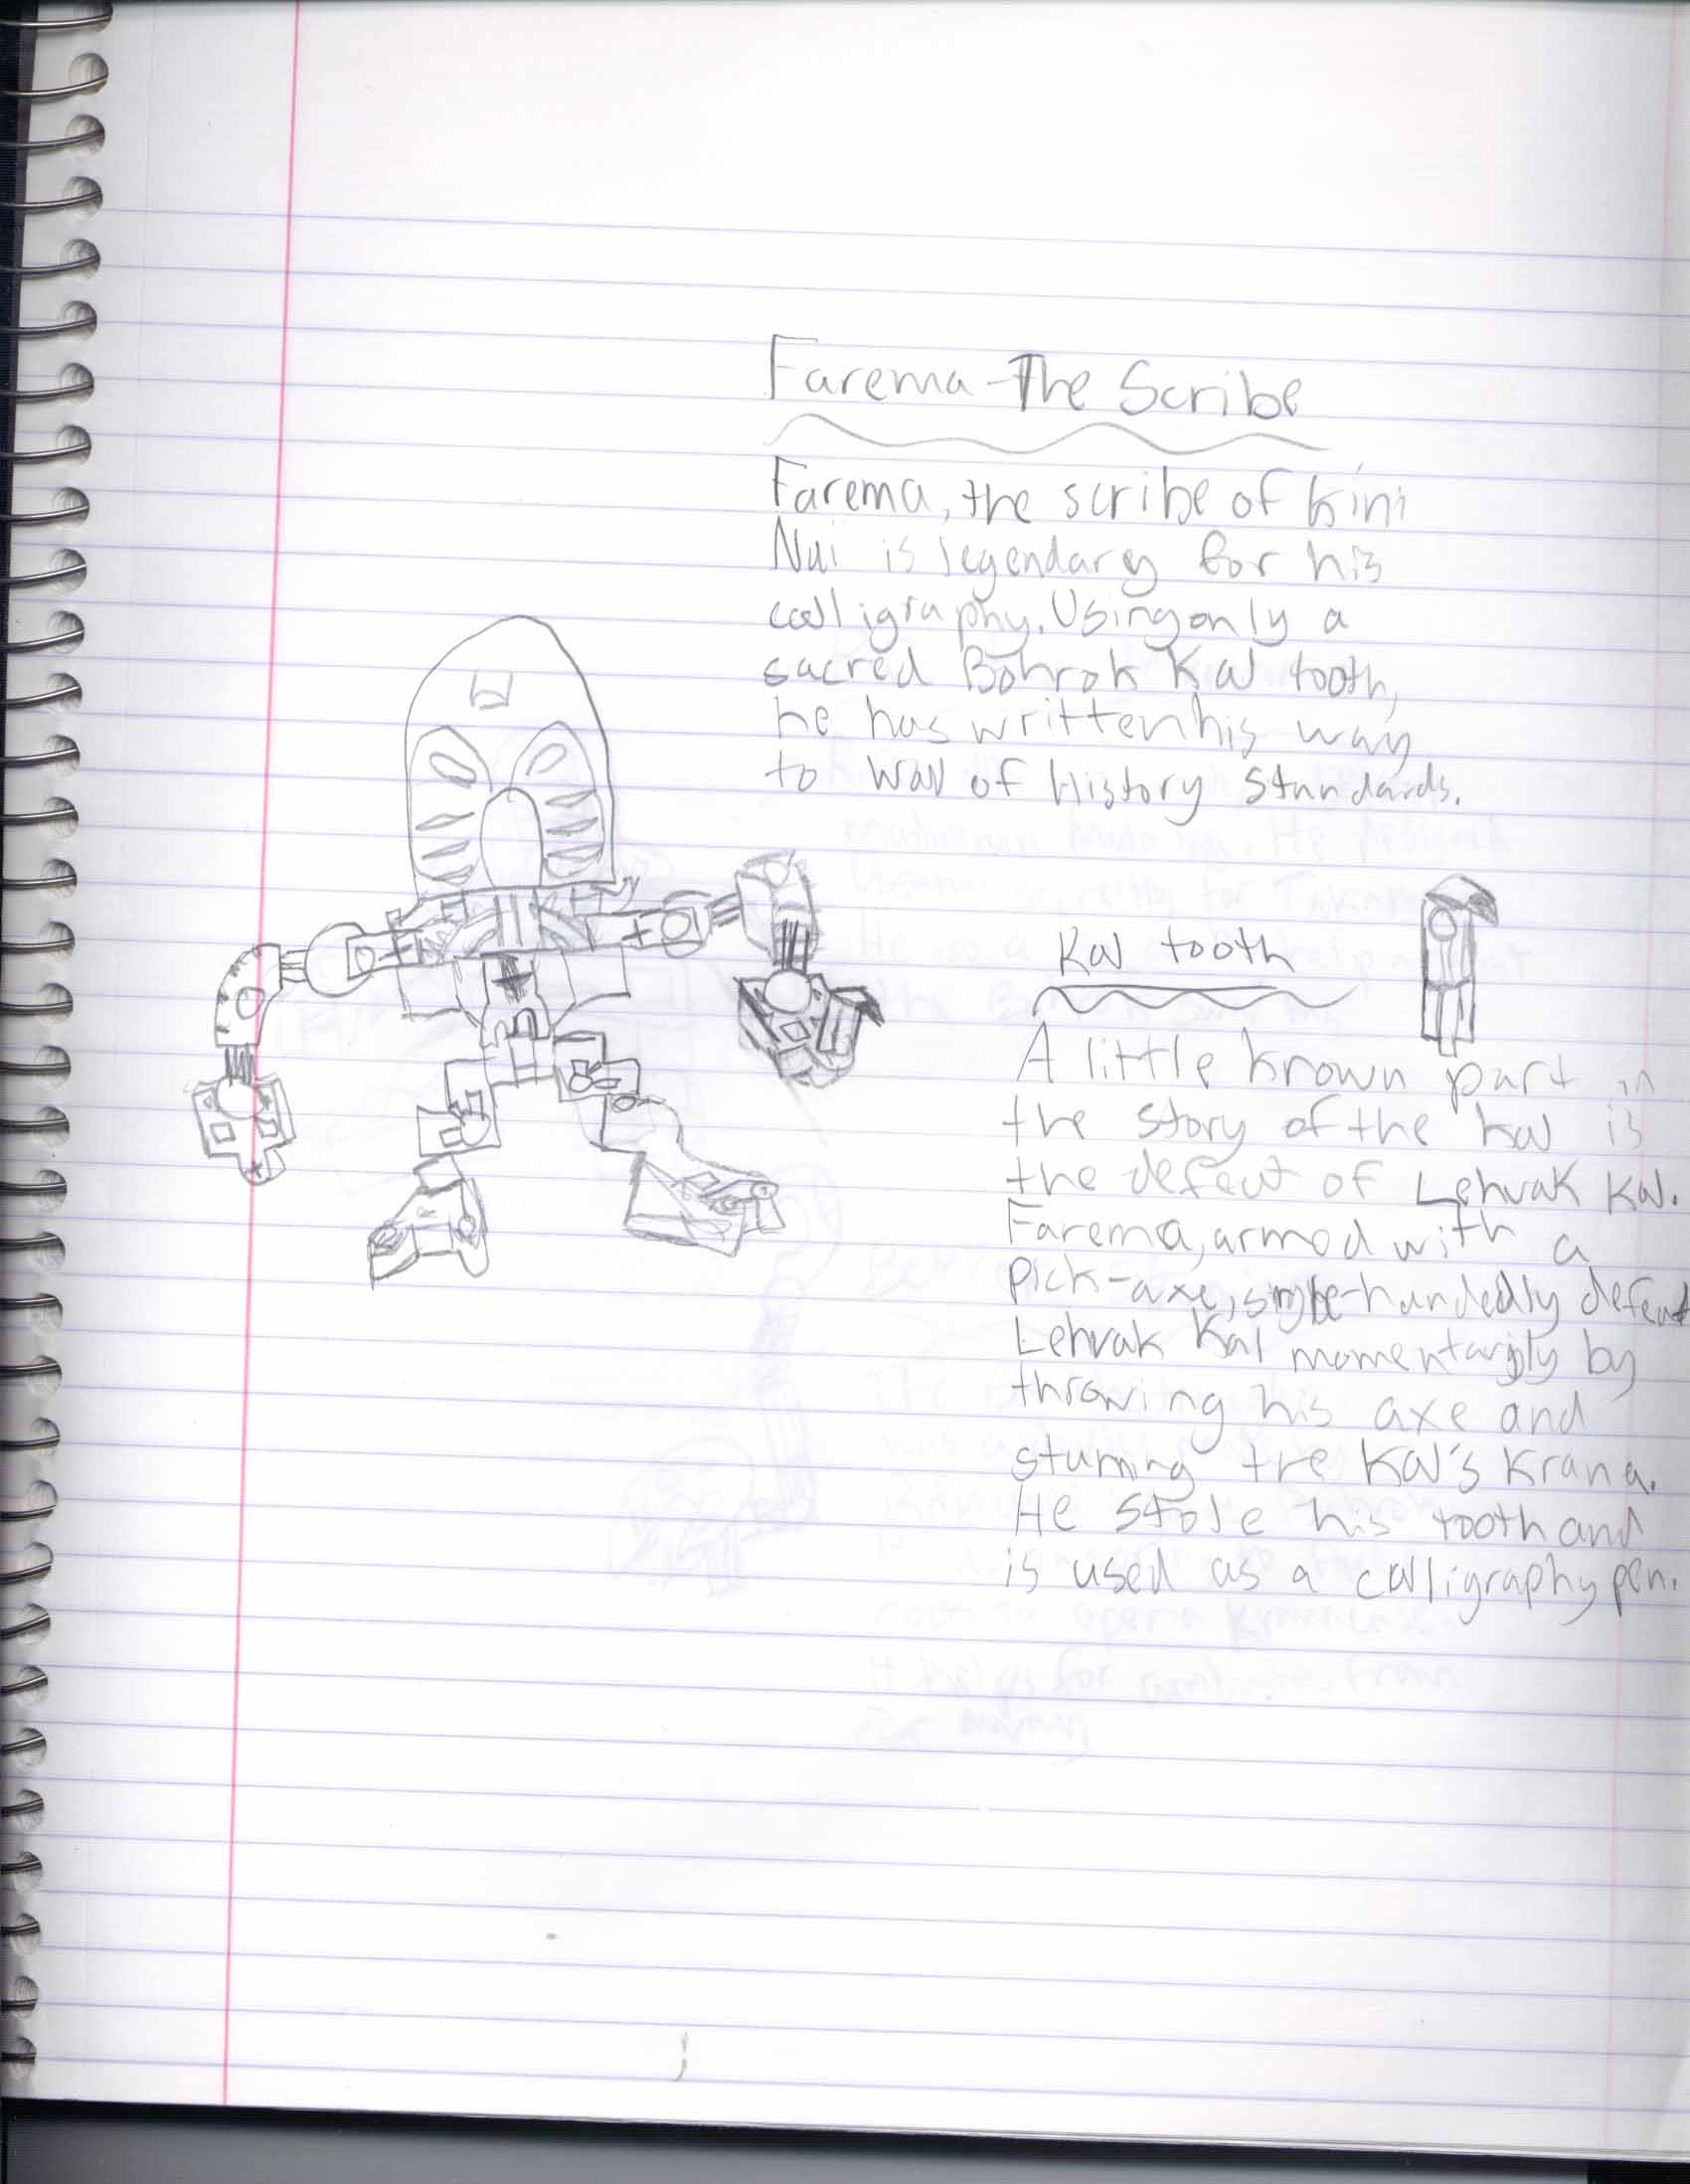 Farema - The Scribe
Farema, the scribe of Kini
Nui is legendary for his
calligraphy. Using only a
sacred Bohrok Kal tooth,
he has written his way
to Wall of History standards.
Kal tooth
A little known part in
the story of the Kal is
the defeat of Lehvak Kal.
Farema, armed with a
pick-axe, single-handedly defeat
Lehvak Kal momentarily by
throwing his axe and
stunning the Kal's Krana.
He stole his tooth and
is used as a calligraphy pen.